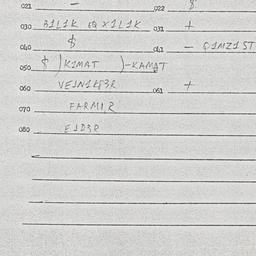 021 — 022 $
030 B1L1K EQ X1L1K 031 +
040 $ 041 — Q1MZ1ST
050 $ )K1MAT )-KAMAT
060 061 +
070 FARM1R
080 E1D3R